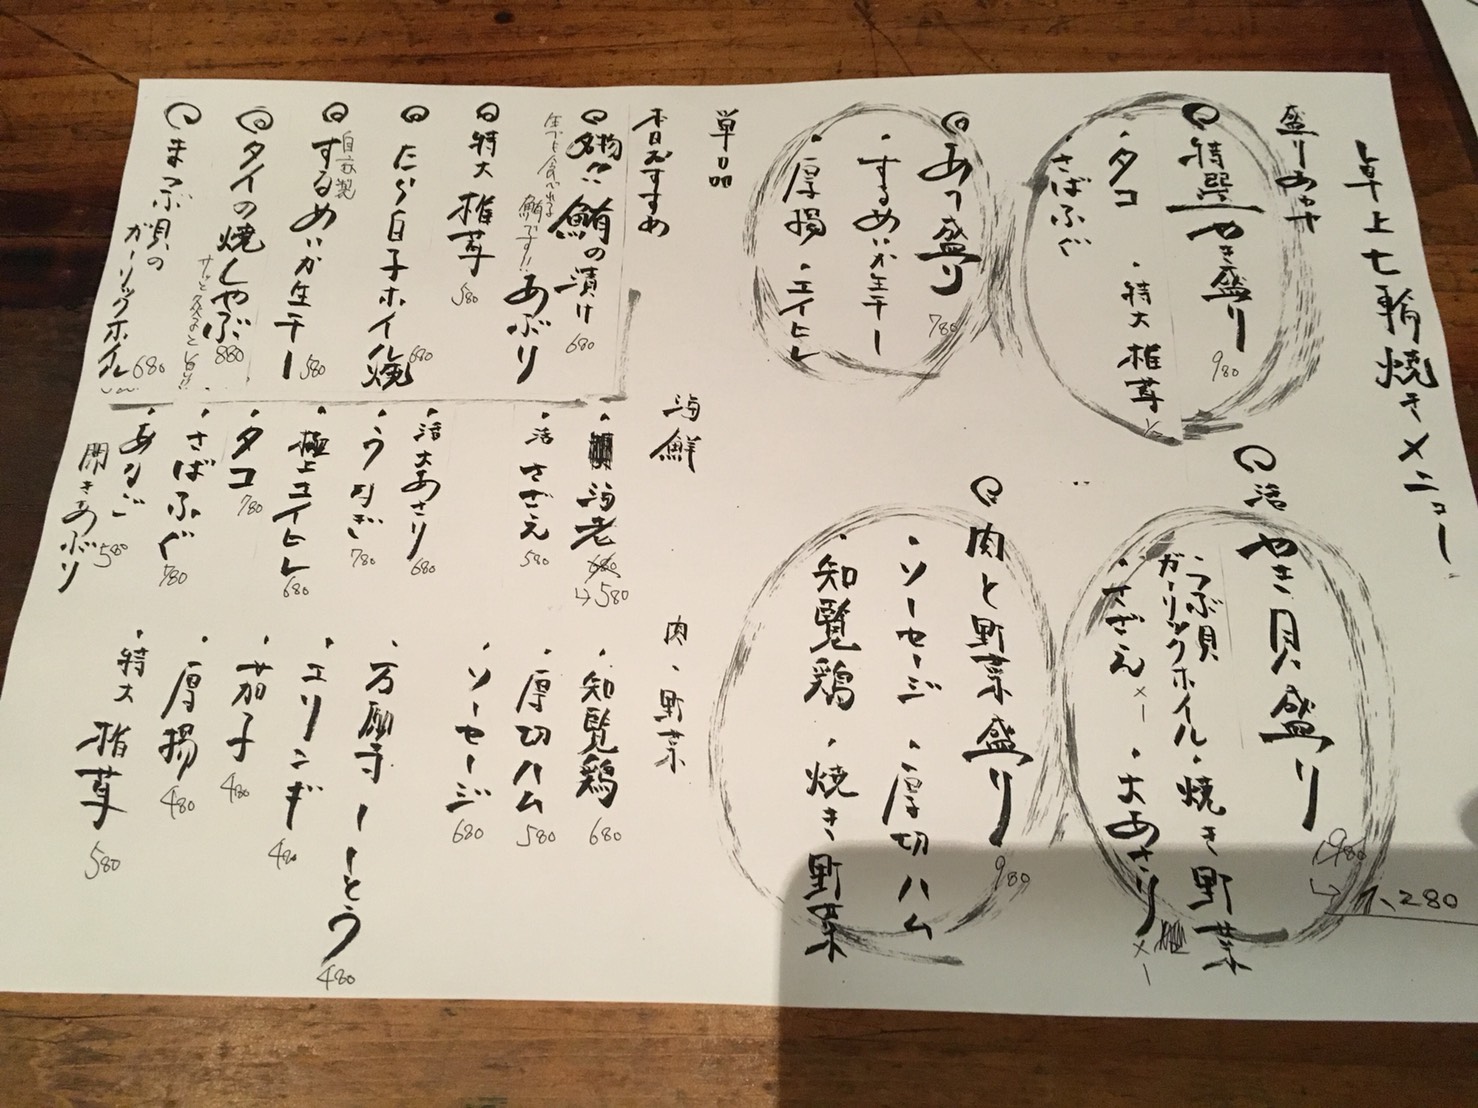 卓上七輪焼きメニュー
盛りあわせ
特選やき盛り
980
・タコ ・特大 椎茸
・さばふぐ
活 やき貝盛り
1,980
→ 1,280
・つぶ貝
ガーリックホイル
・焼き野菜
・さざえ ×1
・大あさり ×1
あて盛り
780
・するめいか生干し
・厚揚 ・エイヒレ
肉と野菜盛り
980
・ソーセージ ・厚切ハム
・知覧鶏 ・焼き野菜
単品
本日おすすめ
名物!! 鮪の漬け あぶり
680
生でも食べれる鮪です!!
特大 椎茸
580
たら白子ホイル焼
680
自家製
するめいか生干し
580
タイの焼しゃぶ
880
サッと炙ると旨い!!
まつぶ貝の
ガーリックホイル
680
海鮮
・海老
680
→580
・活 さざえ
580
・活大あさり
680
・うなぎ
780
・極上エイヒレ
680
・タコ
780
・さばふぐ
780
・あなご
開きあぶり
580
肉・野菜
・知覧鶏
680
・厚切ハム
580
・ソーセージ
680
・万願寺とうがらし
480
・エリンギ
480
・茄子
480
・厚揚
480
・特大 椎茸
580